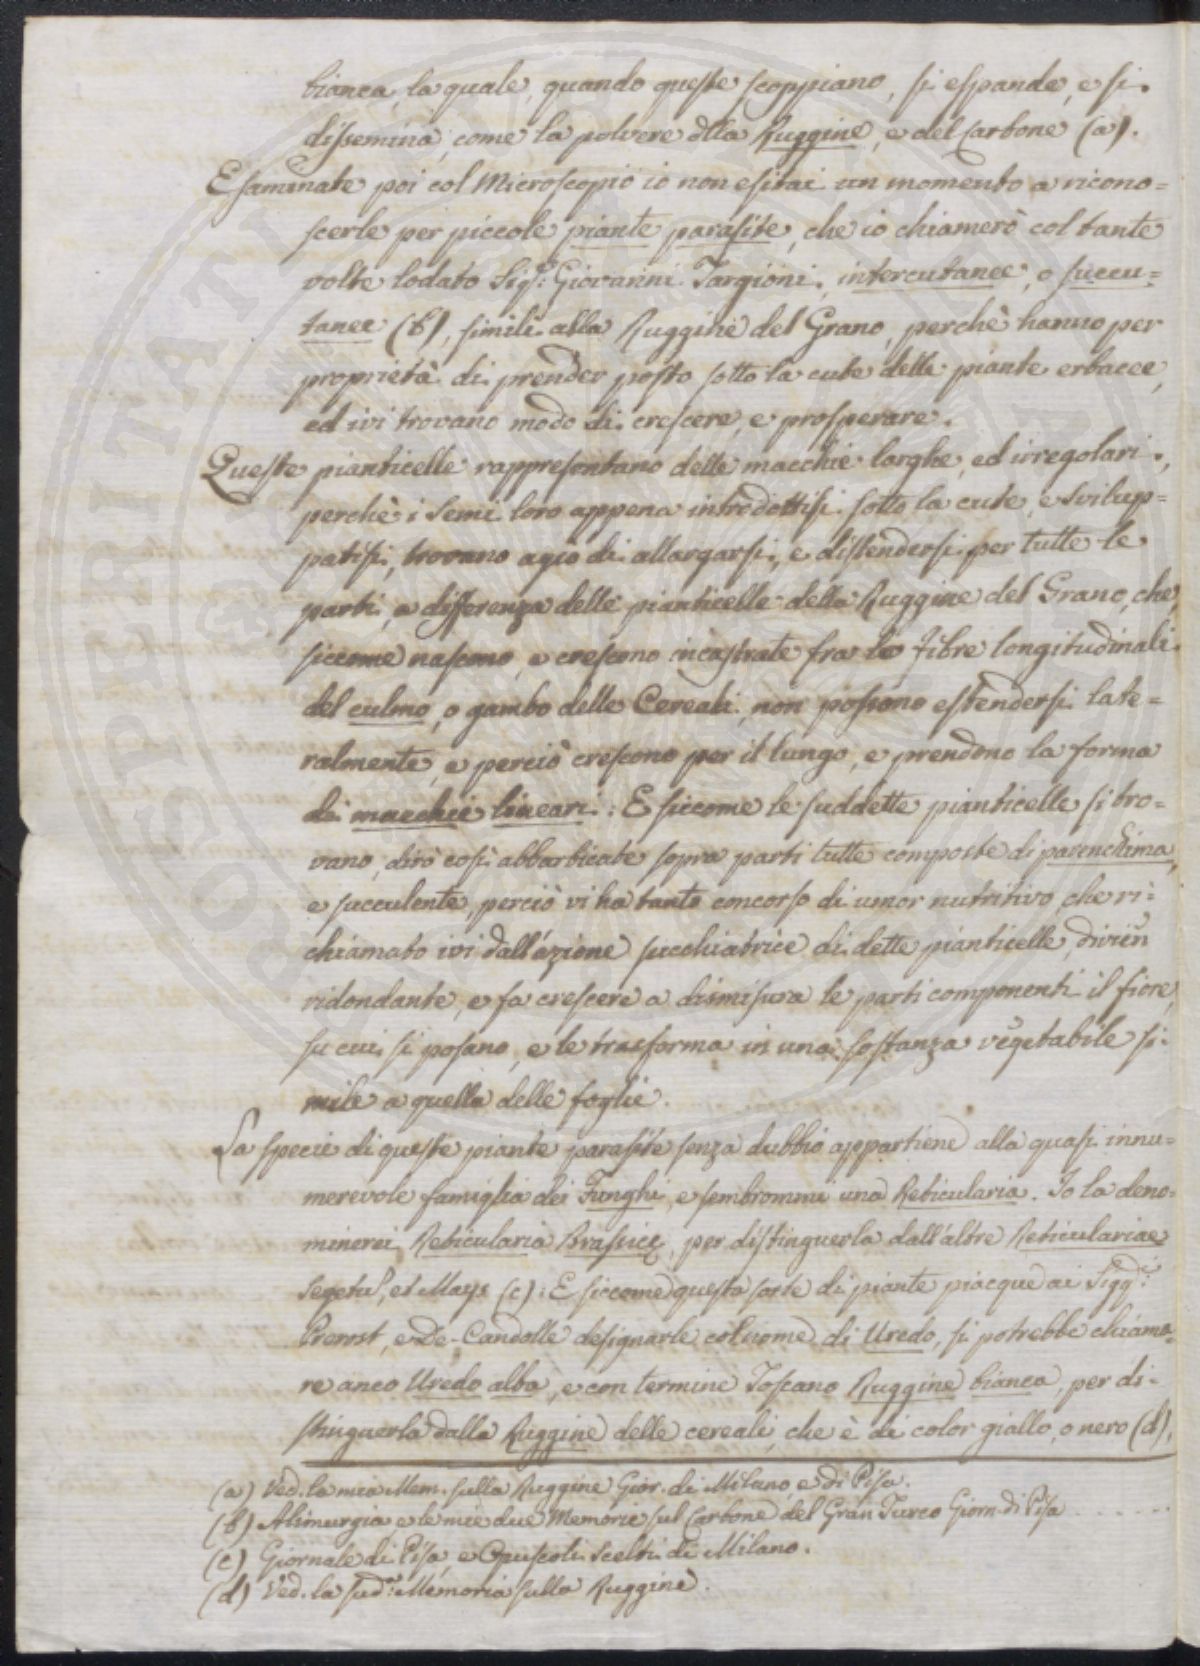 bianca, la quale, quando queste scoppiano, si espande, e si
dissemina, come la polvere dlla Ruggine, e del Carbone (a).
Esaminate poi col Microscopio io non esitai un momento a ricono=
scerle per piccole piante parasite, che io chiamerò col tante
volte lodato Sigr: Giovanni Targioni, intercutanee, o succu=
tanee (b), simili alla Ruggine del Grano, perchè hanno per
proprietà di prender posto sotto la cute delle piante erbacee,
ed ivi trovano modo di crescere, e prosperare.
Queste pianticelle rappresentano delle macchie larghe, ed irregolari,
perchè i semi loro appena introdottisi sotto la cute, e svilup=
patisi, trovano agio di allargarsi, e distendersi per tutte le
parti, a differenza delle pianticelle della Ruggine del Grano, che,
siccome nascono, e crescono incastrate fra le fibre longitudinali
del culmo, o gambo delle Cereali, non possono estendersi late=
ralmente, e perciò crescono per il lungo, e prendono la forma
di macchie lineari: E siccome le suddette pianticelle si tro=
vano, dirò così abbarbicate sopra parti tutte composte di parenchima,
e succulente, perciò vi ha tanto concorso di umor nutritivo, che ri=
chiamato ivi dall'azione succhiatrice di dette pianticelle, divien
ridondante, e fa crescere a dismisura le parti componenti il fiore,
su cui si posano, e le trasforma in una sostanza vegetabile si=
mile a quella delle foglie.
La specie di queste piante parasite senza dubbio appartiene alla quasi innu=
merevole famiglia dei Funghi, e sembrommi una Reticularia. Io la deno=
minerei Reticularia Brassicę, per distinguerla dall'altre Reticulariae
Segetu, et Mays (c): E siccome questa sorte di piante piacque ai Sigg.ri
Prevost, e De-Candolle designarle col nome di Uredo, si potrebbe chiama=
re anco Uredo alba, e con termine Toscano Ruggine bianca, per di=
stinguerla dalla Ruggine delle cereali, che è di color giallo, o nero (d),
(a) Ved. la mia Mem. sulla Ruggine Gior. di Milano e di Pisa.
(b) Alimurgia, e le mie due Memorie sul Carbone del Gran Turco Giorn. di Pisa
(c) Giornale di Pisa, e Opuscoli Scelti di Milano.
(d) Ved. la sud.a Memoria sulla Ruggine.